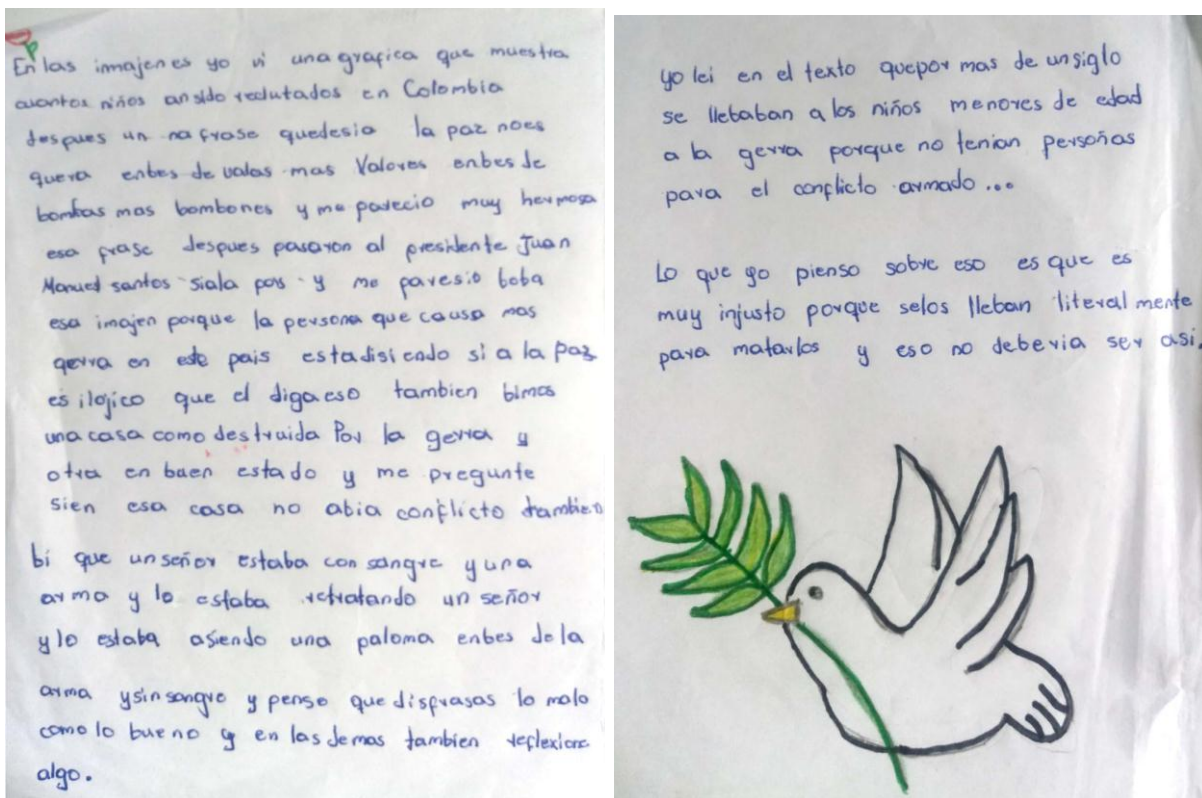 En las immajenes yo vi una grafica que muestra
cuantos niños an sido reclutados en Colombia
despues un na frase quedesia la paz noes
guera enbes de valas mas Valores enbes de
bombas mas bombones y me parecio muy hermosa
esa frase despues pasaron al presidente Juan
Manuel santos siala pas y me paresio boba
esa imajen porque la persona que causa mas
gerra en este pais estadisiendo si a la Paz
es ilojico que el diga eso tambien bimos
una casa como destruida Por la gerra y
otra en buen estado y me pregunte
sien esa casa no abia conflicto tambien
bi que un señor estaba con sangre y una
arma y lo estaba retratando un señor
y lo estaba asiendo una paloma enbes de la
arma ysinsangre y penso que disfrasas lo malo
como lo bueno y en las demas tambien reflexione
algo.
yo lei en el texto quepor mas de un siglo
se llebaban a los niños menores de edad
a la gerra porque no tenian persoñas
para el conflicto armado...
Lo que yo pienso sobre eso es que es
muy injusto porque selos lleban literal mente
para matarlos y eso no deberia ser asi.